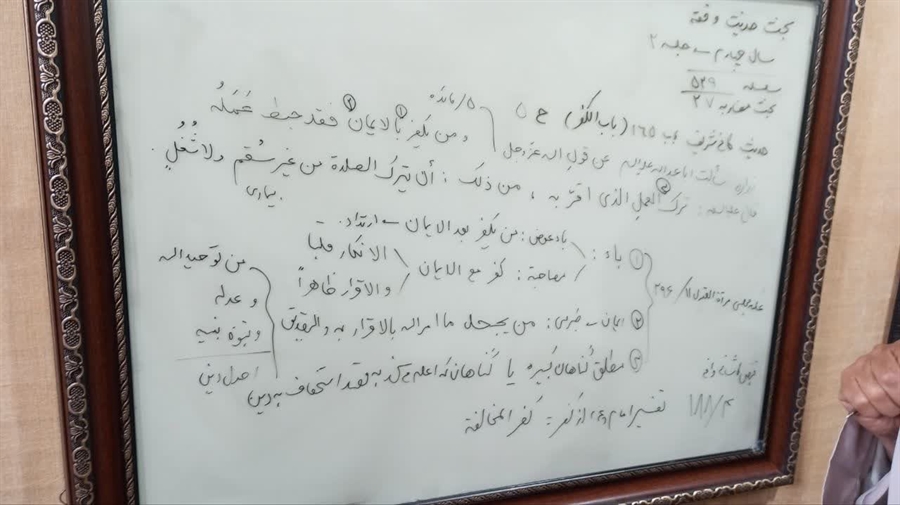 بحث حدیث و فقه
سال چهارم – جلسه ۲
سلسله ۵۲۹
بحث مهدویه ۲۷
حدیث کافی شریف ب ۱۶۵ (باب الکفر) ح ۵
زراره سألت اباعبدالله علیه السلام عن قول الله عزوجل
۵/مائده
و من یکفر ① بالایمان ② فقد حبط عَمَلُه
قال علیه السلام: ترک ③ العمل الذی اقرّ به ، من ذلک : أن یترک الصلاة من غیر سُقم ولا شُغُل.
بیماری
علامه مجلسی مرآة العقول ۱۱/۲۹۶
① باء :
باء عوض : من یکفر بعد الایمان – ارتداد.
مصاحبة : کفر مع الایمان
الانکار قلباً
و الاقرار ظاهراً
② ایمان – : من یجحد ما امر الله بالاقرار به والتصدیق
من توحید الله
و عدله
و نبوة نبیه
اصول دین
③ مطلق گناهان کبیره یا گناهان که به قصد استخفاف به دین
فیض کاشانی وافی
۴/۱۸۸
تفسیر امام از کفر = کفر المخالفة